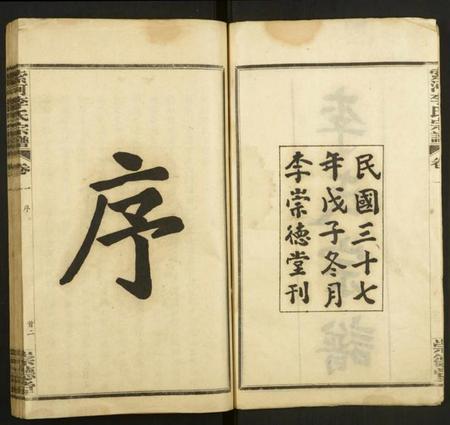 民國三十七
年戊子冬月
李崇德堂刊
序
李氏宗譜
卷一 序